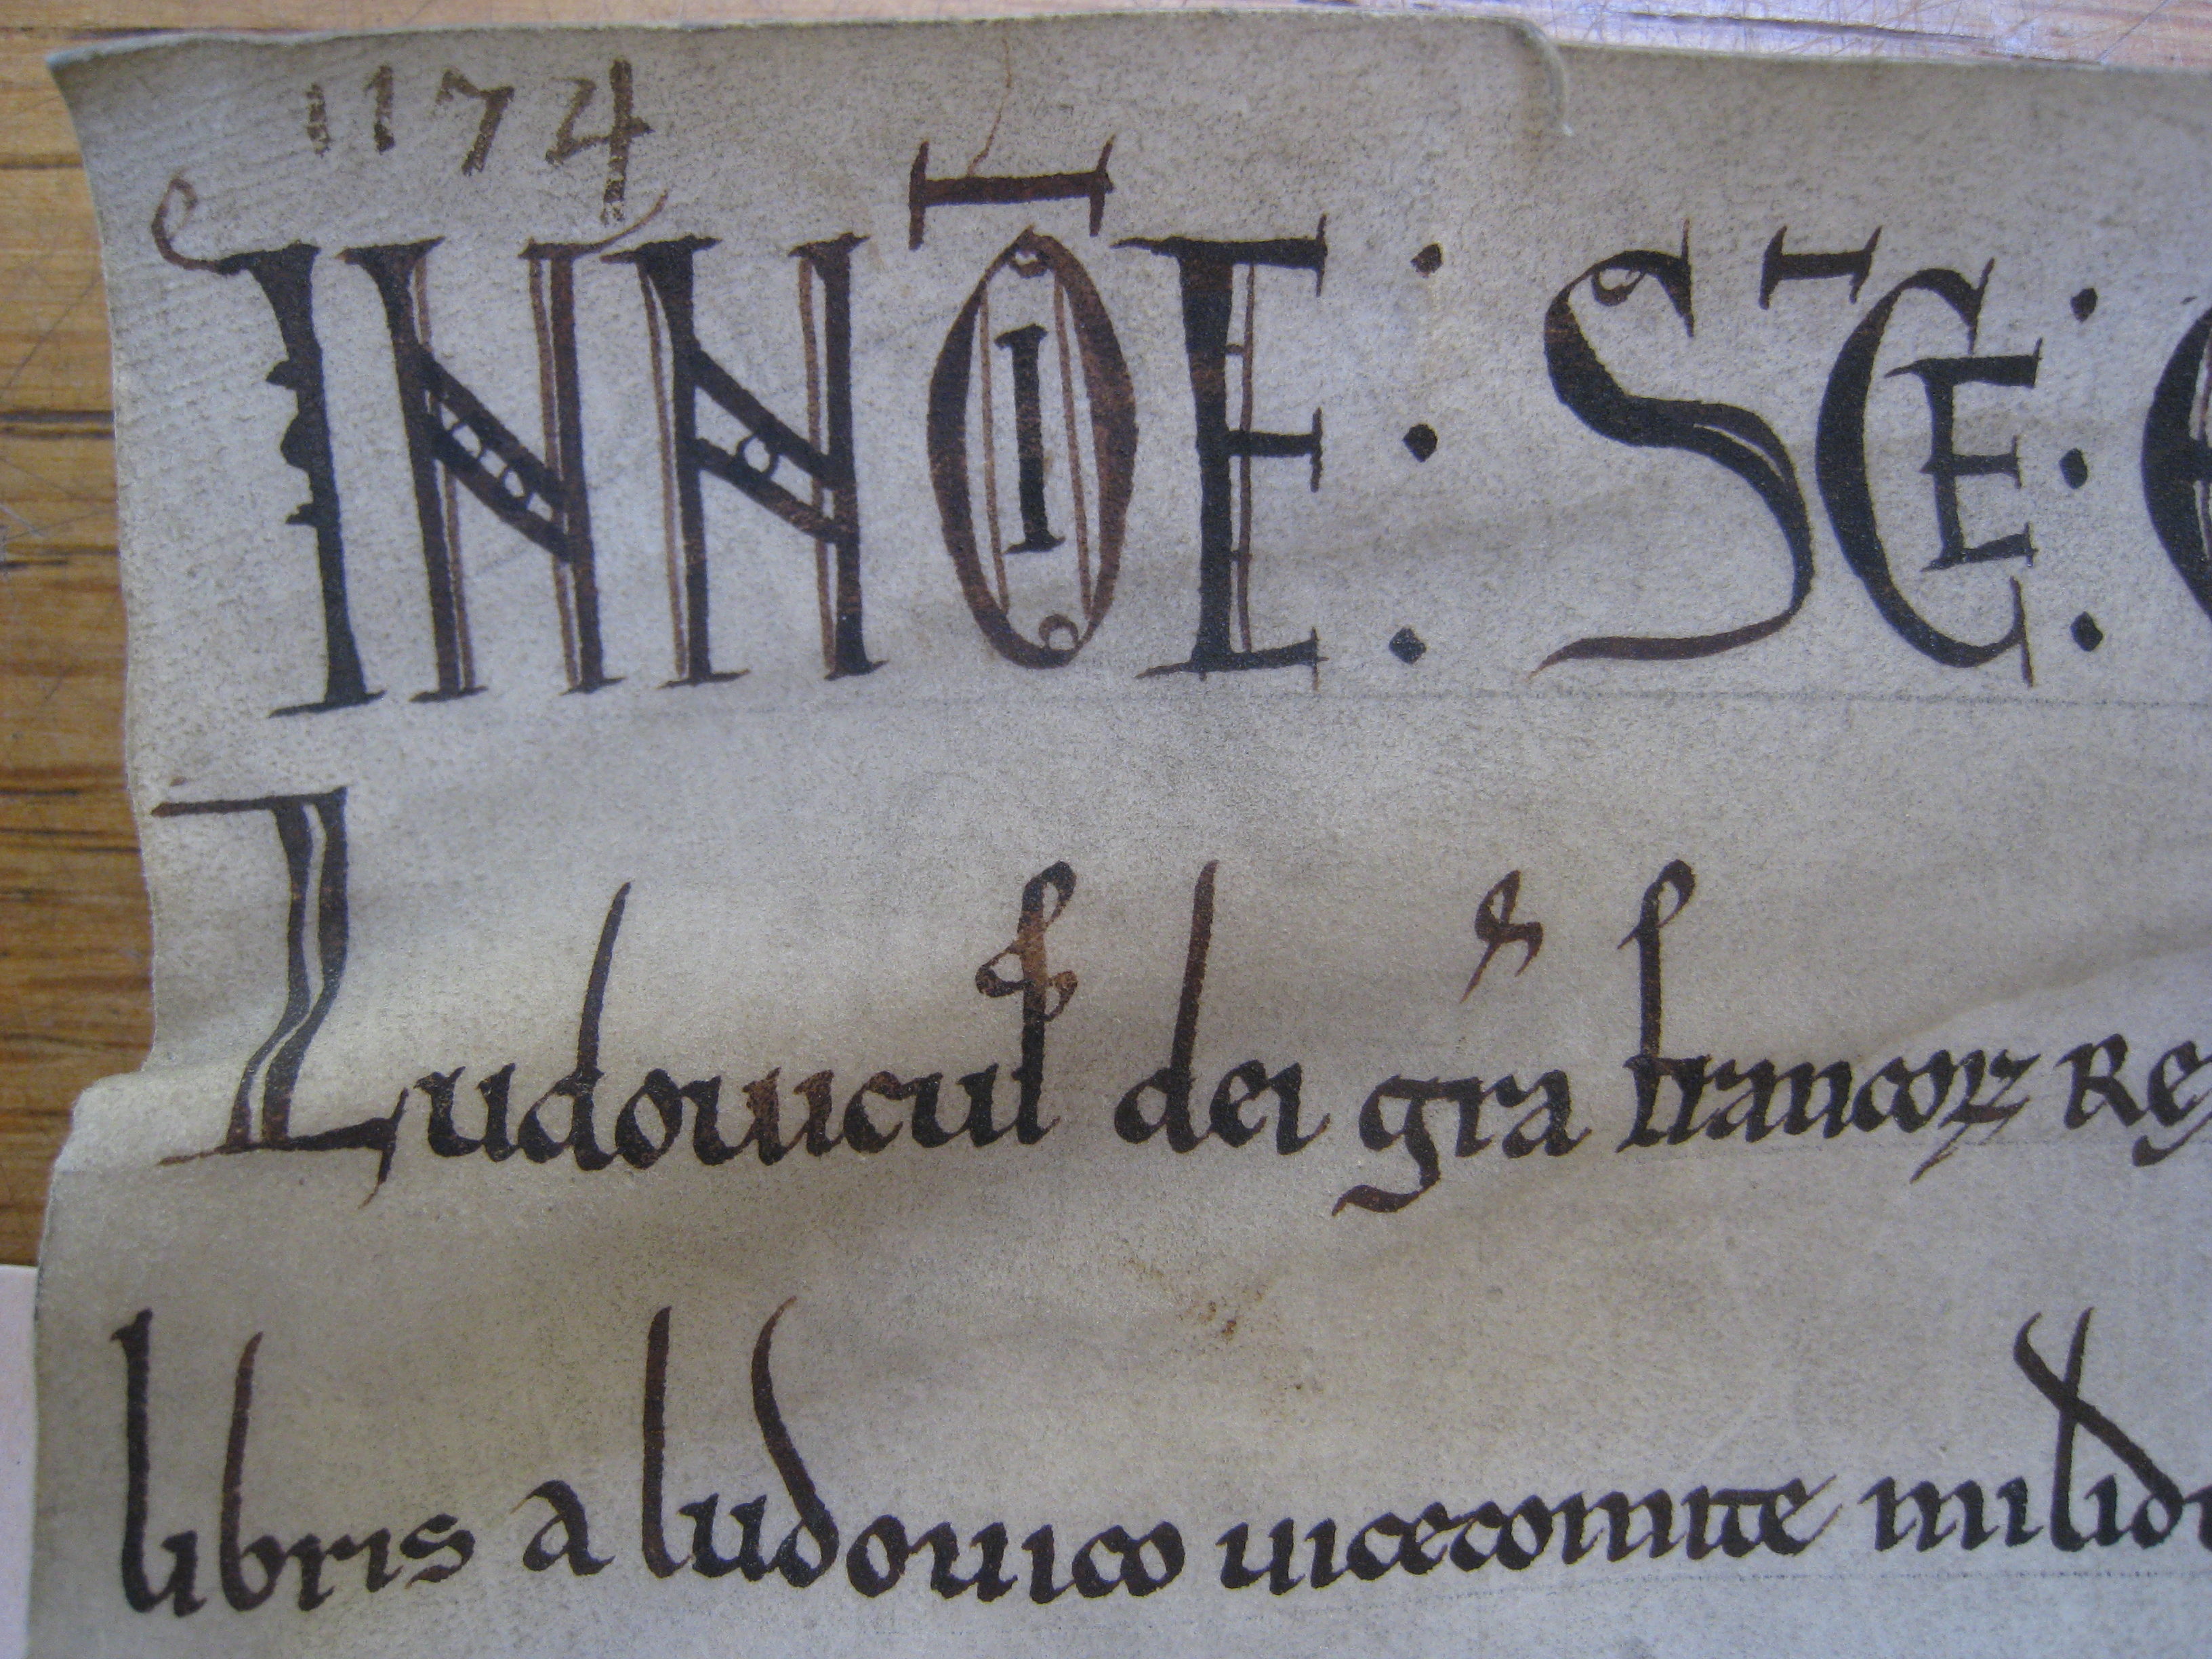 1174
IN NOIE : SCE :
Ludouicus dei gra francoꝝ Rex
libris a ludouico uicecomite